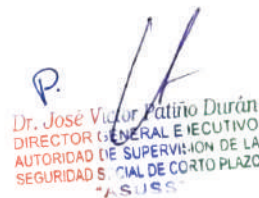 P.
Dr. José Victor Patiño Durán
DIRECTOR GENERAL EJECUTIVO
AUTORIDAD DE SUPERVISION DE LA
SEGURIDAD SOCIAL DE CORTO PLAZO
"ASUSS"